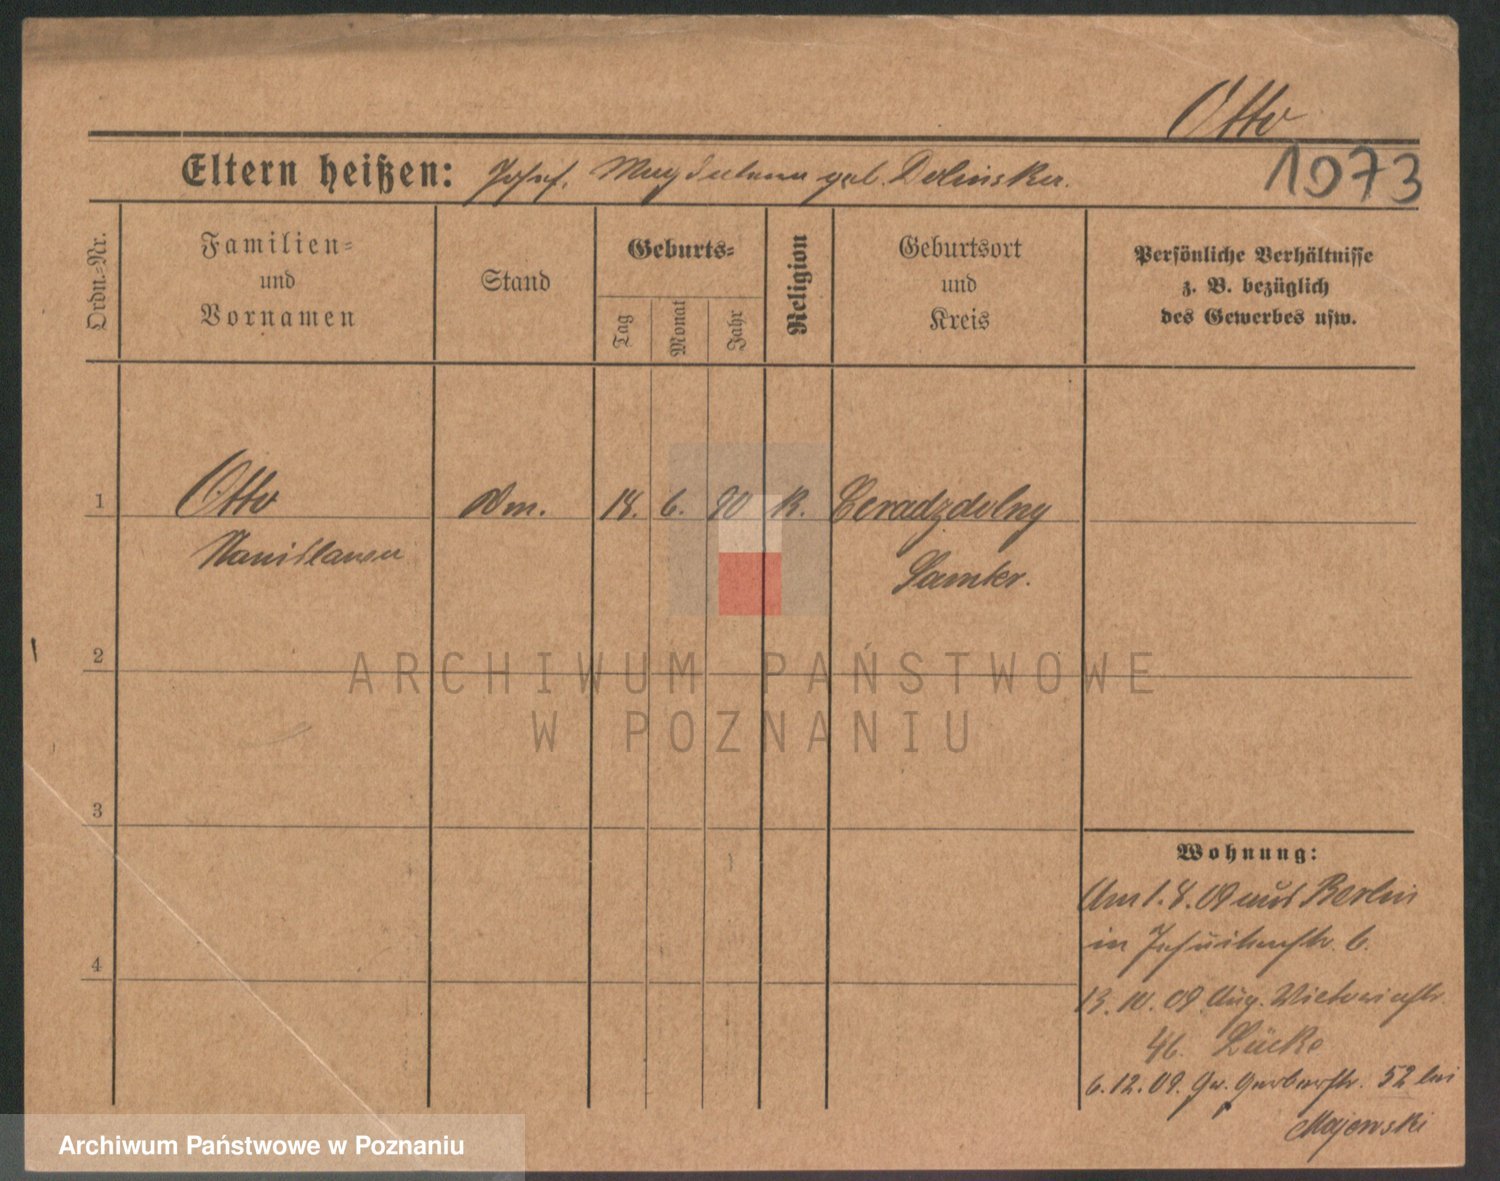 Otto
1973
Eltern heißen: Josef, Magdalena geb. Dolinska.
Ordn.=Nr.
Familien=
und
Vornamen
Stand
Geburts=
Tag
Monat
Jahr
Religion
Geburtsort
und
Kreis
Persönliche Verhältnisse
z. B. bezüglich
des Gewerbes usw.
1 Otto 18. 6. 90 K. Ceradzdolny
Stanislawa
Samter.
2
ARCHIWUM PAŃSTWOWE
W POZNANIU
3
Wohnung:
Am 1.8.09 aus Berlin
in Jesuitenstr. 6.
4
13.10.09 Aug. Victoriastr.
46. Lücke
6.12.09. Gr. Gerberstr. 52 bei
Majewski
Archiwum Państwowe w Poznaniu